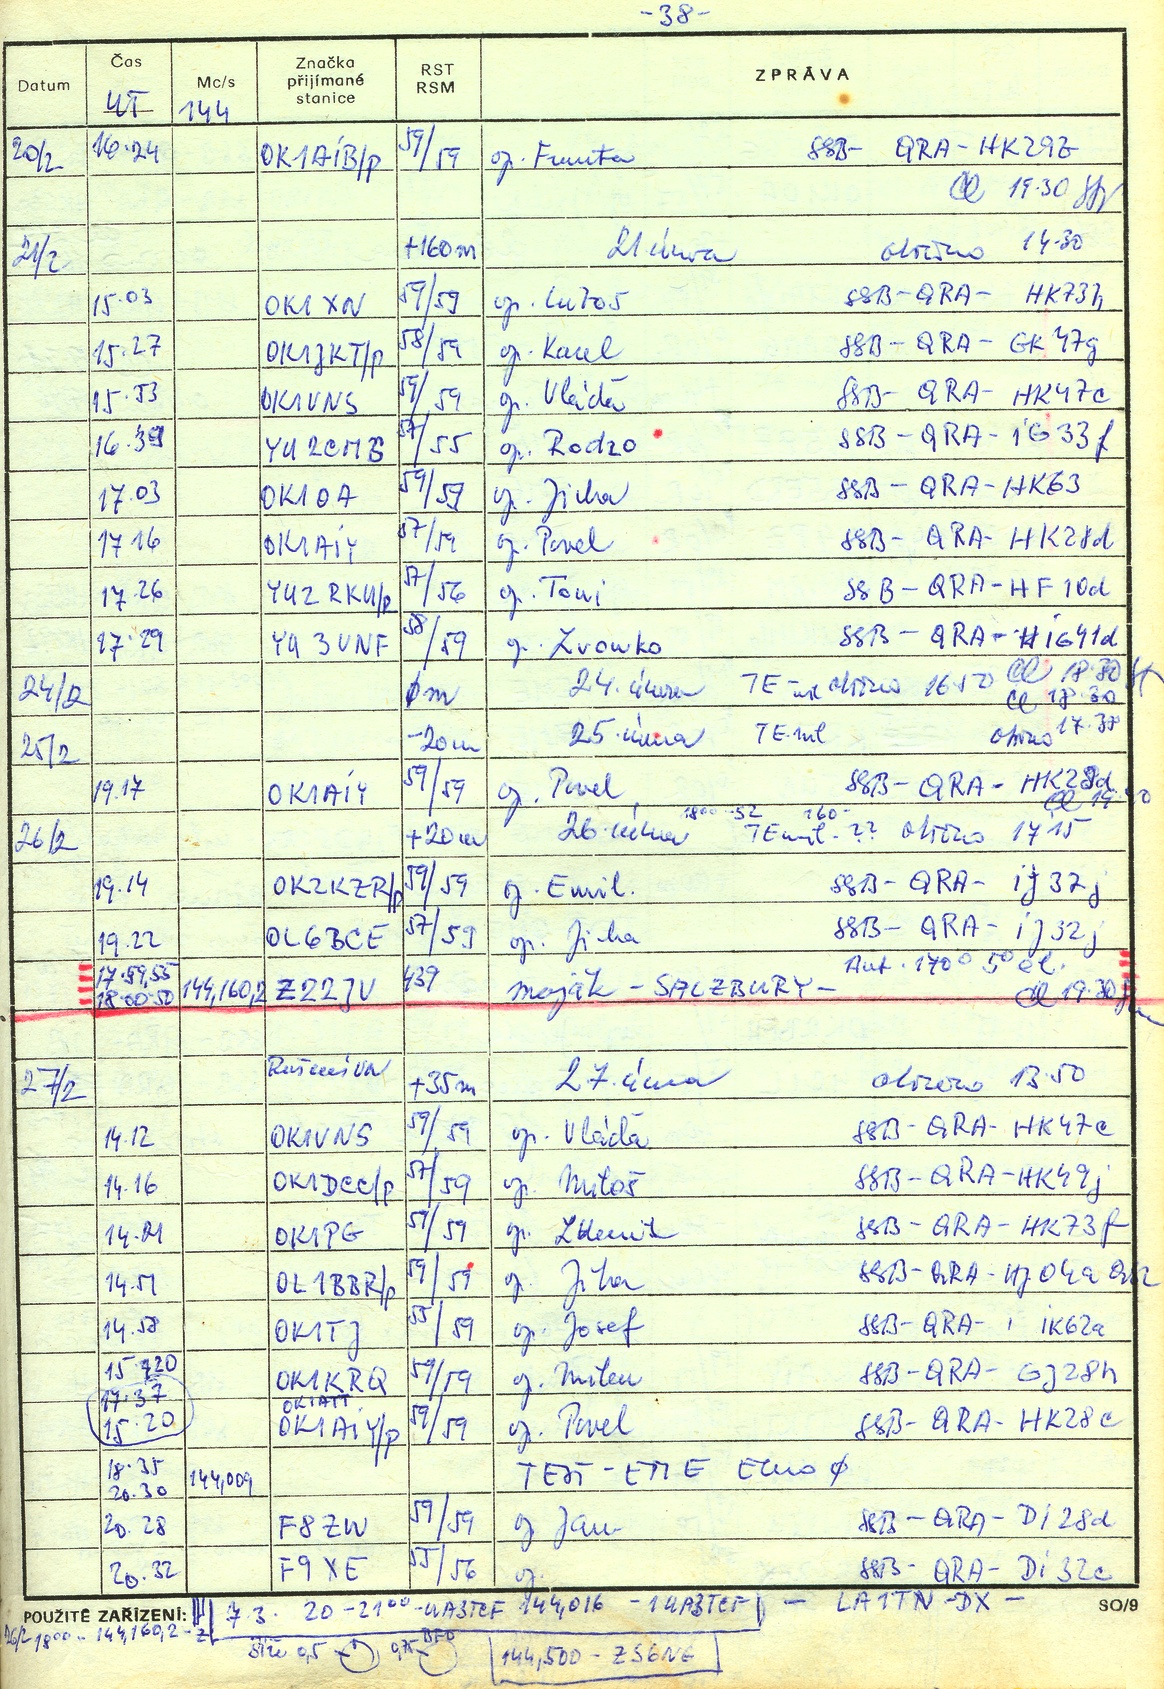 -38-
Datum Čas UT Mc/s 144 Značka přijímané stanice RST RSM ZPRÁVA
20/2 16.24 OK1AIB/p 59/59 op. Franta SSB- QRA-HK29z
19.30
21/2 +160m 21 února 14.30
15.03 OK1XN 59/59 op. Luboš SSB-QRA- HK73h
15.27 OK1JKT/p 58/59 op. Karel SSB- QRA- GK47g
15.53 OK1VNS 59/59 op. Vláďa SSB- QRA- HK47c
16.39 YU2CMB 57/55 op. Rodzo SSB-QRA-iG33f
17.03 OK1OA 59/59 op. Jirka SSB- QRA-HK63
17.16 OK1AIY 57/59 op. Pavel SSB- QRA- HK28d
17.26 YU2RKU/p 57/56 op. Toni SSB-QRA-HF10d
17.29 YU3UNF 58/59 op. Zvonko SSB- QRA- HiG41d
24/2 øm 24. února TE 16.50 18.30
18.30
25/2 -20m 25. února TE 17.37
19.17 OK1AIY 59/59 op. Pavel SSB- QRA- HK28d
26/2 +20m 26. února 18⁰⁰-52 160- ?? 17.15
19.14 OK2KZR/p 59/59 op. Emil. SSB- QRA- ij37j
19.22 OL6BCE 57/59 op. Jirka SSB- QRA- ij32j
17.59,55
18.00.50 144,160,2 Z22JV 439 maják - SALZBURY- 19.30
27/2 +35m 27. února 13.50
14.12 OK1VNS 59/59 op. Vláďa SSB- QRA- HK47c
14.16 OK1DCC/p 57/59 op. Miloš SSB- QRA-HK49j
14.21 OK1PG 59/59 op. Zdeněk SSB- QRA- HK73f
14.51 OL1BBR/p 59/59 op. Jirka SSB-QRA-HJ04a
14.58 OK1TJ 55/59 op. Josef SSB-QRA- IK62a
15.20 OK1KRQ 59/59 op. Milan SSB-QRA- GJ28h
17.37
15.20 OK1AIY/p 59/59 op. Pavel SSB- QRA- HK28c
18.35
20.30 144,009 TEST-EME Echo ø
20.28 F8ZW 59/59 op Jan SSB- QRA- Di28d
20.32 F9XE 55/56 op. SSB- QRA- Di32c
POUŽITÉ ZAŘÍZENÍ: 7.3. 20-21⁰⁰-UA3TCF 144,016 -1UA3TCF - LA1TN-DX- SO/9
26/2 18⁰⁰ - 144,160,2-Z
0,5 0,75 BFO 144,500-ZS6NE